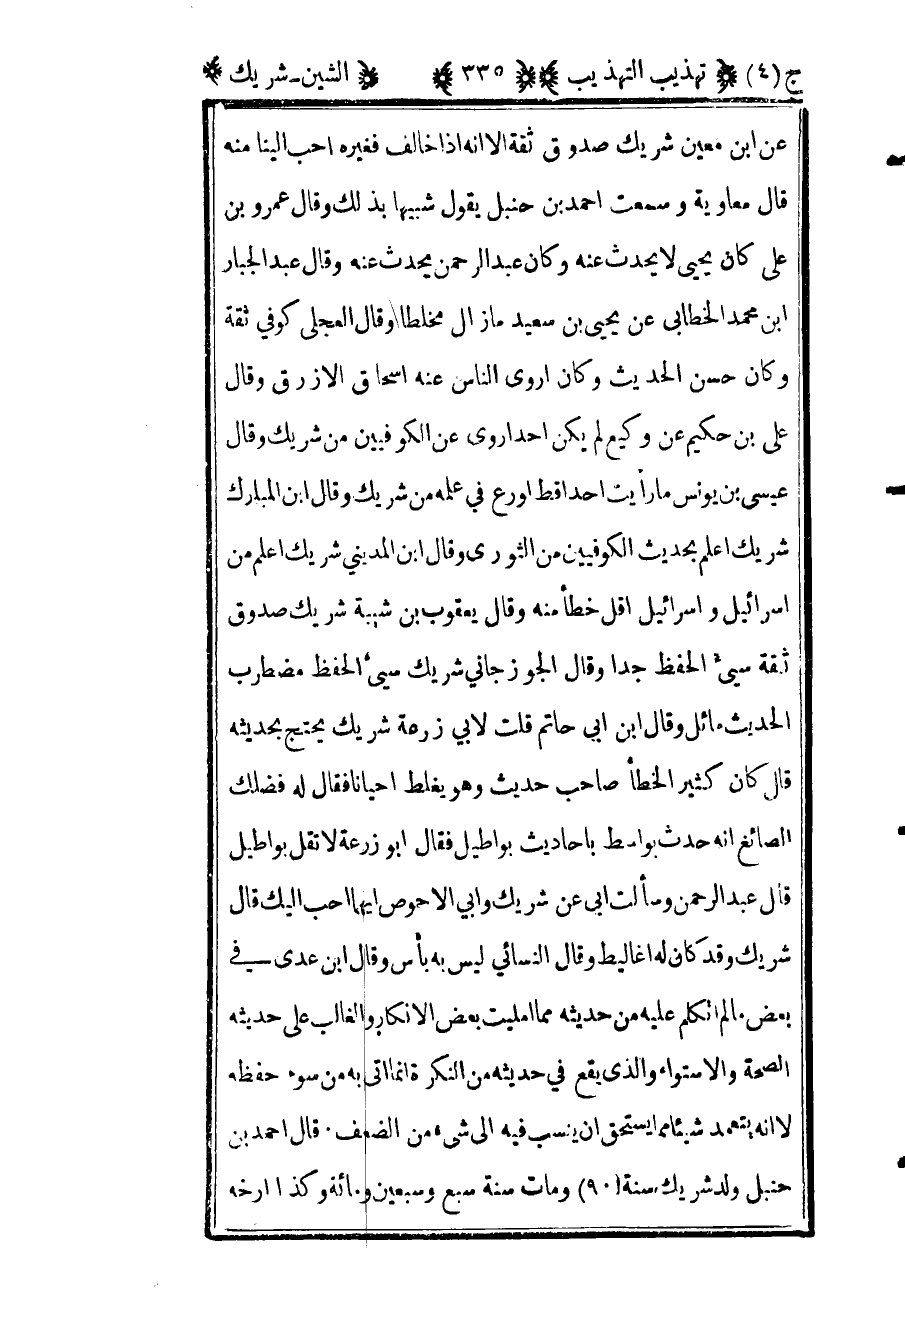 ج (٤) تهذيب التهذيب ٣٣٥ الشين - شريك
عن ابن معين شريك صدوق ثقة الا انه اذا خالف فغيره احب الينا منه
قال معاوية و سمعت احمد بن حنبل يقول شبيها بذلك وقال عمرو بن
على كان يحيى لا يحدث عنه وكان عبد الرحمن يحدث عنه وقال عبد الجبار
ابن محمد الخطابى عن يحيى بن سعيد مازال مخلطا وقال العجلى كوفي ثقة
وكان حسن الحديث وكان اروى الناس عنه اسحاق الازرق وقال
على بن حكيم عن وكيع لم يكن احد اروى عن الكوفيين من شريك وقال
عيسى بن يونس ما رأيت احدا قط اورع في علمه من شريك وقال ابن المبارك
شريك اعلم بحديث الكوفيين من الثورى وقال ابن المديني شريك اعلم من
اسرائيل و اسرائيل اقل خطأ منه وقال يعقوب بن شيبة شريك صدوق
ثقة سيئ الحفظ جدا وقال الجوزجاني شريك سيئ الحفظ مضطرب
الحديث مائل وقال ابن ابي حاتم قلت لابي زرعة شريك يحتج بحديثه
قال كان كثير الخطأ صاحب حديث وهو يغلط احيانا فقال له فضلك
الصائغ انه حدث بواسط باحاديث بواطيل فقال ابو زرعة لا تقل بواطيل
قال عبد الرحمن وسألت ابى عن شريك وابي الاحوص ايهما احب اليك قال
شريك وقد كان له اغاليط وقال النسائي ليس به بأس وقال ابن عدى فى
بعض مالم اتكلم عليه من حديثه مما امليت بعض الانكار والغالب على حديثه
الصحة والاستواء والذى يقع في حديثه من النكرة انما اتى به من سوء حفظه
لا انه يتعمد شيئا مما يستحق ان ينسب فيه الى شىء من الضعف ٠ قال احمد بن
حنبل ولد شريك سنة (٩٠) ومات سنة سبع وسبعين ومائة وكذا ارخه